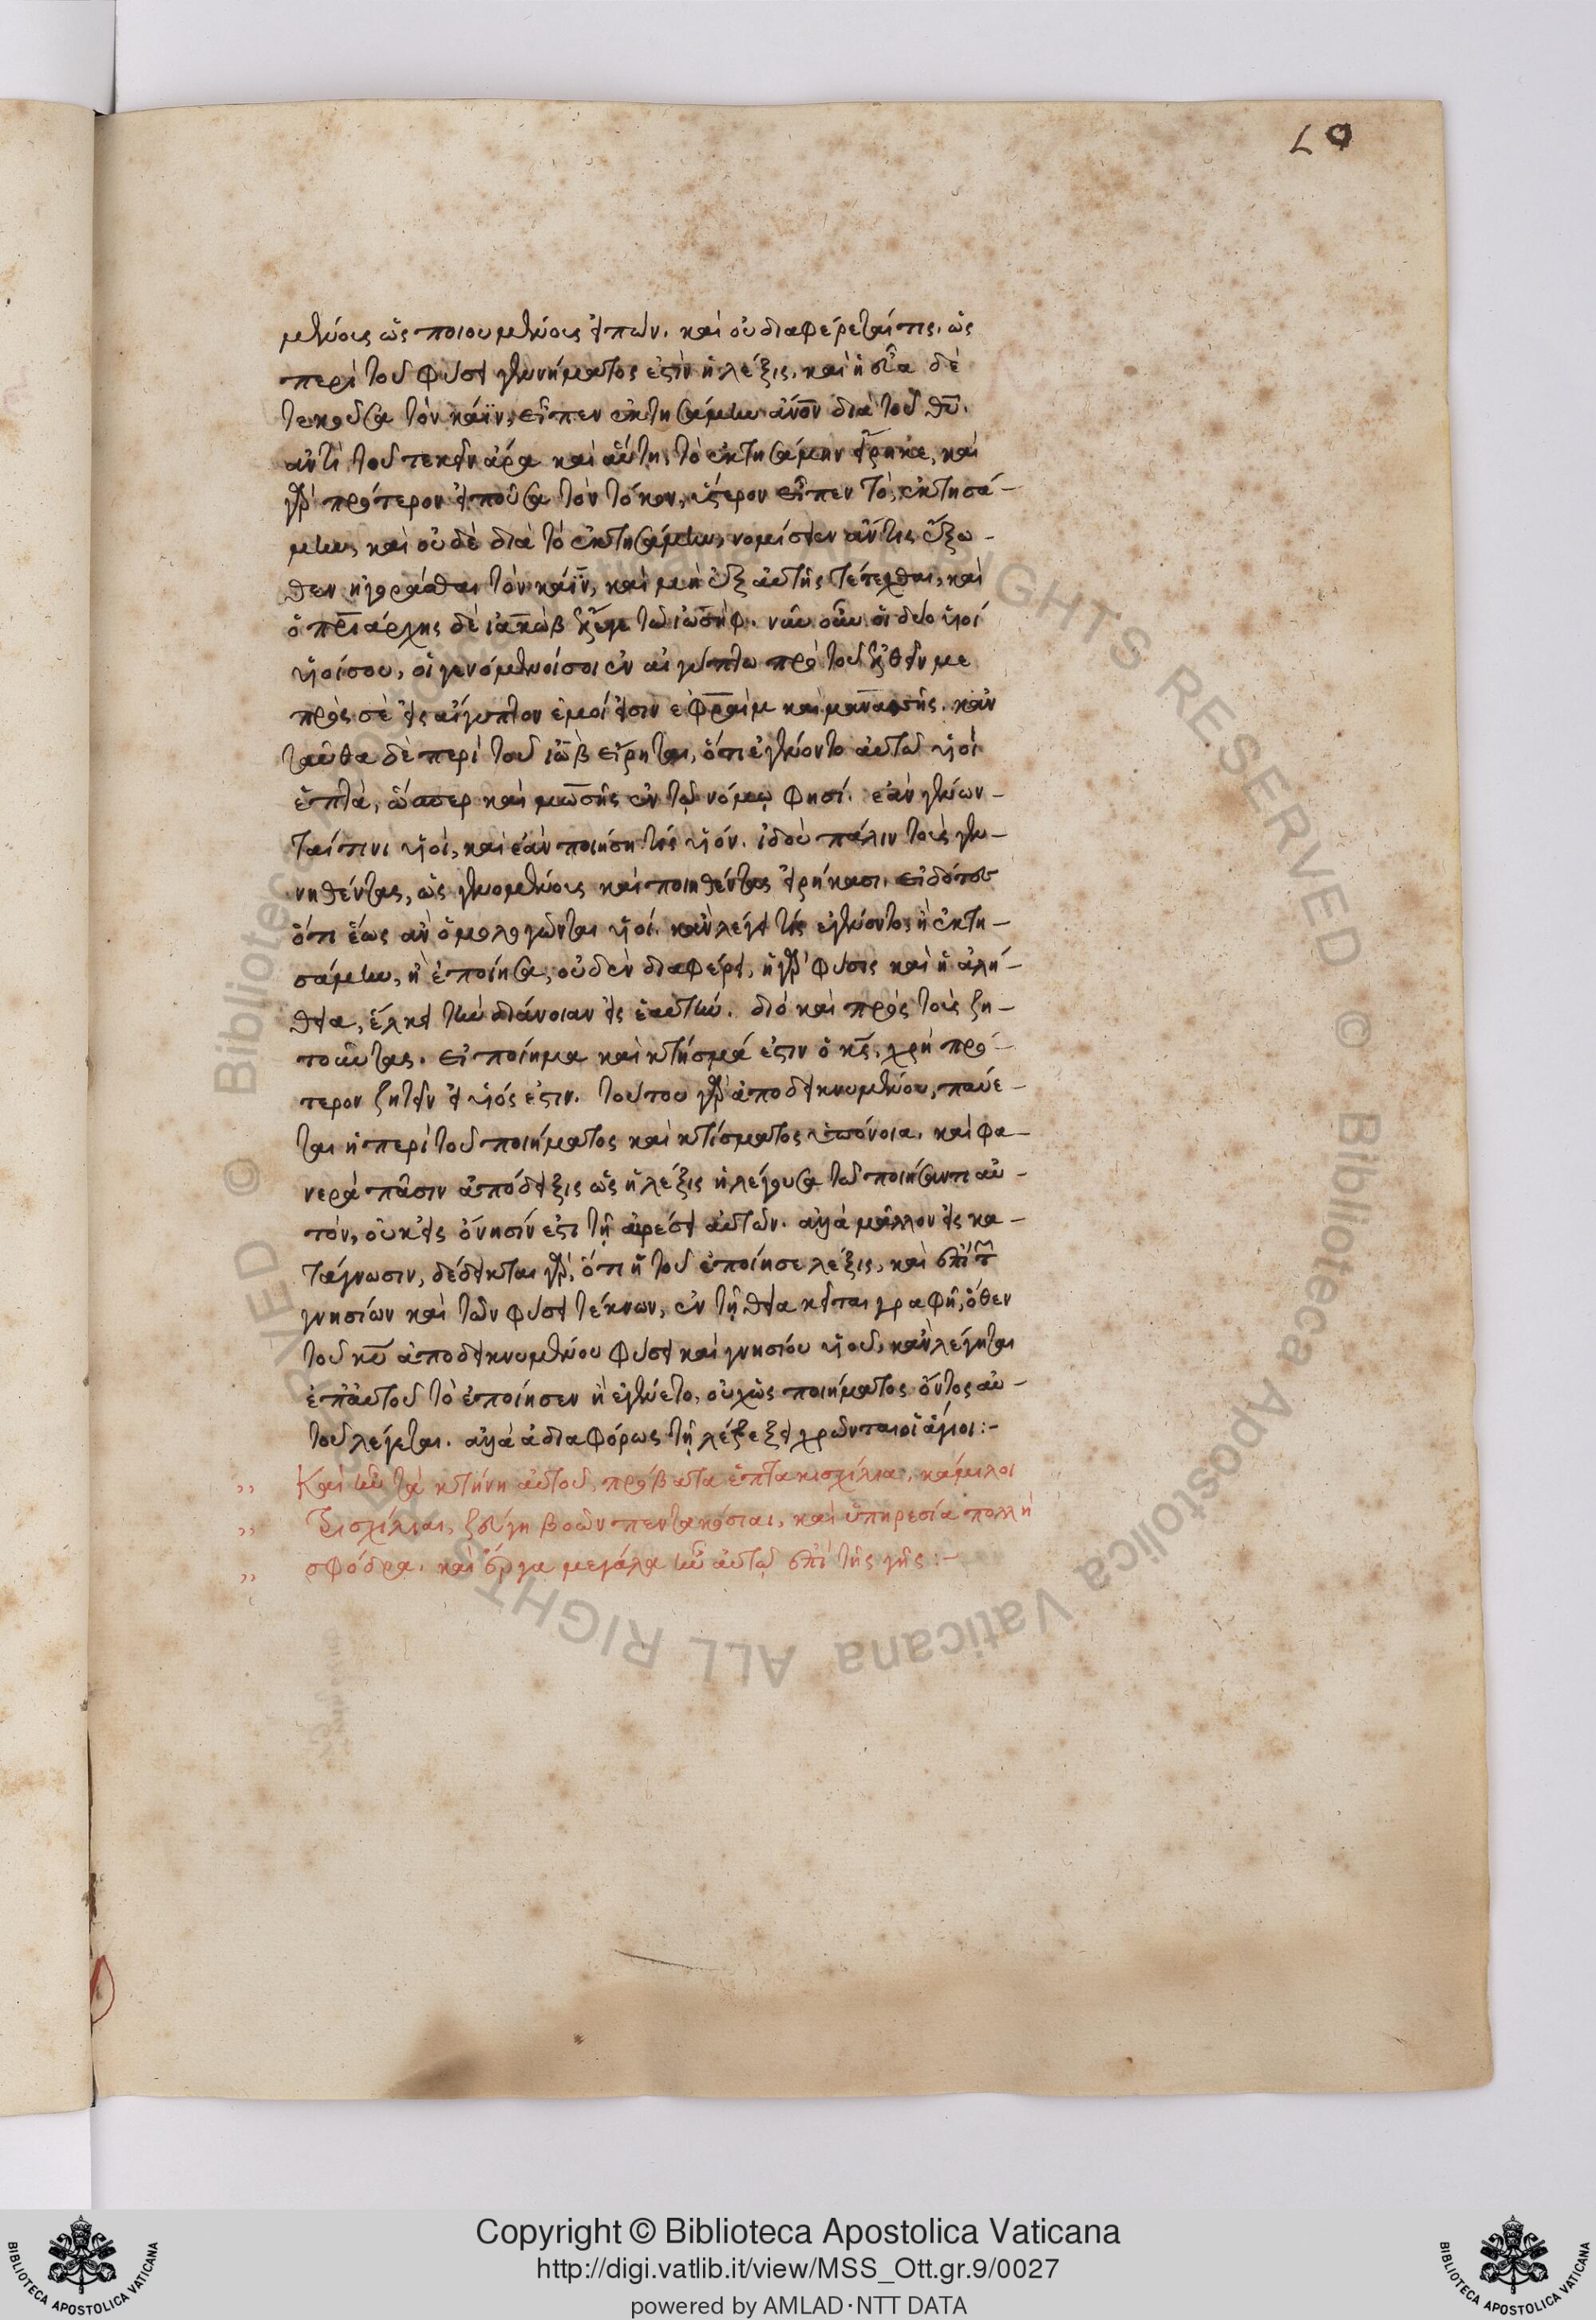 μένους ὡς ποιουμένους εἰπών. καὶ οὐ διαφέρεταί τις. ὡς
περὶ τοῦ φύσει γεννήματός ἐστιν ἡ λέξις. καὶ ἡ εὔα δὲ
τεκοῦσα τὸν κάϊν, εἶπεν ἐκτησάμην ἄνον διὰ τοῦ θῦ.
ἀντὶ τοῦ τεκεῖν ἄρα καὶ αὕτη, τὸ ἐκτησάμην εἴρηκε, καὶ
γὰρ πρότερον εἰποῦσα τὸν τόκον, ὕστερον εἶπεν τὸ, ἐκτησά-
μην, καὶ οὐδὲ διὰ τὸ ἐκτησάμην, νομίσειεν ἄν τις ἔξω-
θεν ἠγοράσθαι τὸν κάϊν, καὶ μὴ ἐξ αὐτῆς τετέχθαι, καὶ
ὁ πριάρχης δὲ ἰακὼβ ἔλεγε τῶ ἰωσήφ. νῦν οὖν οἱ δύο υἱοί
υἱοί σου, οἱ γενόμενοί σοι ἐν αἰγύπτω πρὸ τοῦ ἐλθεῖν με
πρὸς σὲ εἰς αἴγυπτον ἐμοί εἰσιν ἐφραὶμ καὶ μανασσῆς. κἀν
ταῦθα δὲ περὶ τοῦ ἰὼβ εἴρηται, ὅτι ἐγένοντο αὐτῶ υἱοὶ
ἑπτὰ, ὥσπερ καὶ μωσῆς ἐν τῷ νόμῳ φησί. ἐὰν γένων-
ταί τινι υἱοὶ, καὶ ἐὰν ποιήση τὶς υἱόν. ἰδοὺ πάλιν τοὺς γεν-
νηθέντας, ὡς γενομένους καὶ ποιηθέντας εἰρήκασι. εἰδότες
ὅτι ἕως ἂν ὁμολογῶνται υἱοί. κἂν λέγει τίς ἐγένοντο, ἢ ἐκτη-
σάμην, ἢ ἐποίησα, οὐδὲν διαφέρει, ἡ γὰρ φύσις καὶ ἡ ἀλή-
θεια, ἕλκει τὴν διάνοιαν εἰς ἑαυτήν. διὸ καὶ πρὸς τοὺς ζη-
τοῦντας. εἰ ποίημα καὶ κτίσμά ἐστιν ὁ κς, χρὴ πρό-
τερον ζητεῖν εἰ υἱός ἐστιν. τούτου γὰρ ἀποδεικνυμένου, παύε-
ται ἡ περὶ τοῦ ποιήματος καὶ κτίσματος ὑπόνοια. καὶ φα-
νερὰ πᾶσιν ἀπόδειξις ὡς ἡ λέξις ἡ λέγουσα τῶ ποιήσαντι αὐ-
τὸν, οὐκ εἰς ὄνησίν ἐστι τῇ αἱρέσει αὐτῶν. ἀλλὰ μᾶλλον εἰς κα-
τάγνωσιν, δέδεικται γὰρ, ὅτι ἡ τοῦ ἐποίησε λέξις, καὶ ἐπὶ τῶν
γνησίων καὶ τῶν φύσει τέκνων, ἐν τῇ θεία κεῖται γραφῇ, ὅθεν
τοῦ κυ ἀποδεικνυμένου φύσει καὶ γνησίου υἱοῦ, κἂν λέγηται
ἐπ' αὐτοῦ τὸ ἐποίησεν ἢ ἐγένετο, οὐχ ὡς ποιήματος ὄντος αὐ-
τοῦ λέγεται. ἀλλὰ ἀδιαφόρως τῇ λέξει χρῶνται οἱ ἅγιοι:-
Καὶ ἦν τὰ κτήνη αὐτοῦ, πρόβατα ἑπτακισχίλια, κάμιλοι
τρισχίλιαι, ζεύγη βοῶν πεντακόσιαι, καὶ ὑπηρεσία πολλὴ
σφόδρα. καὶ ἔργα μεγάλα ἦν αὐτῷ ἐπὶ τῆς γῆς:-
Copyright © Biblioteca Apostolica Vaticana
http://digi.vatlib.it/view/MSS_Ott.gr.9/0027
powered by AMLAD·NTT DATA